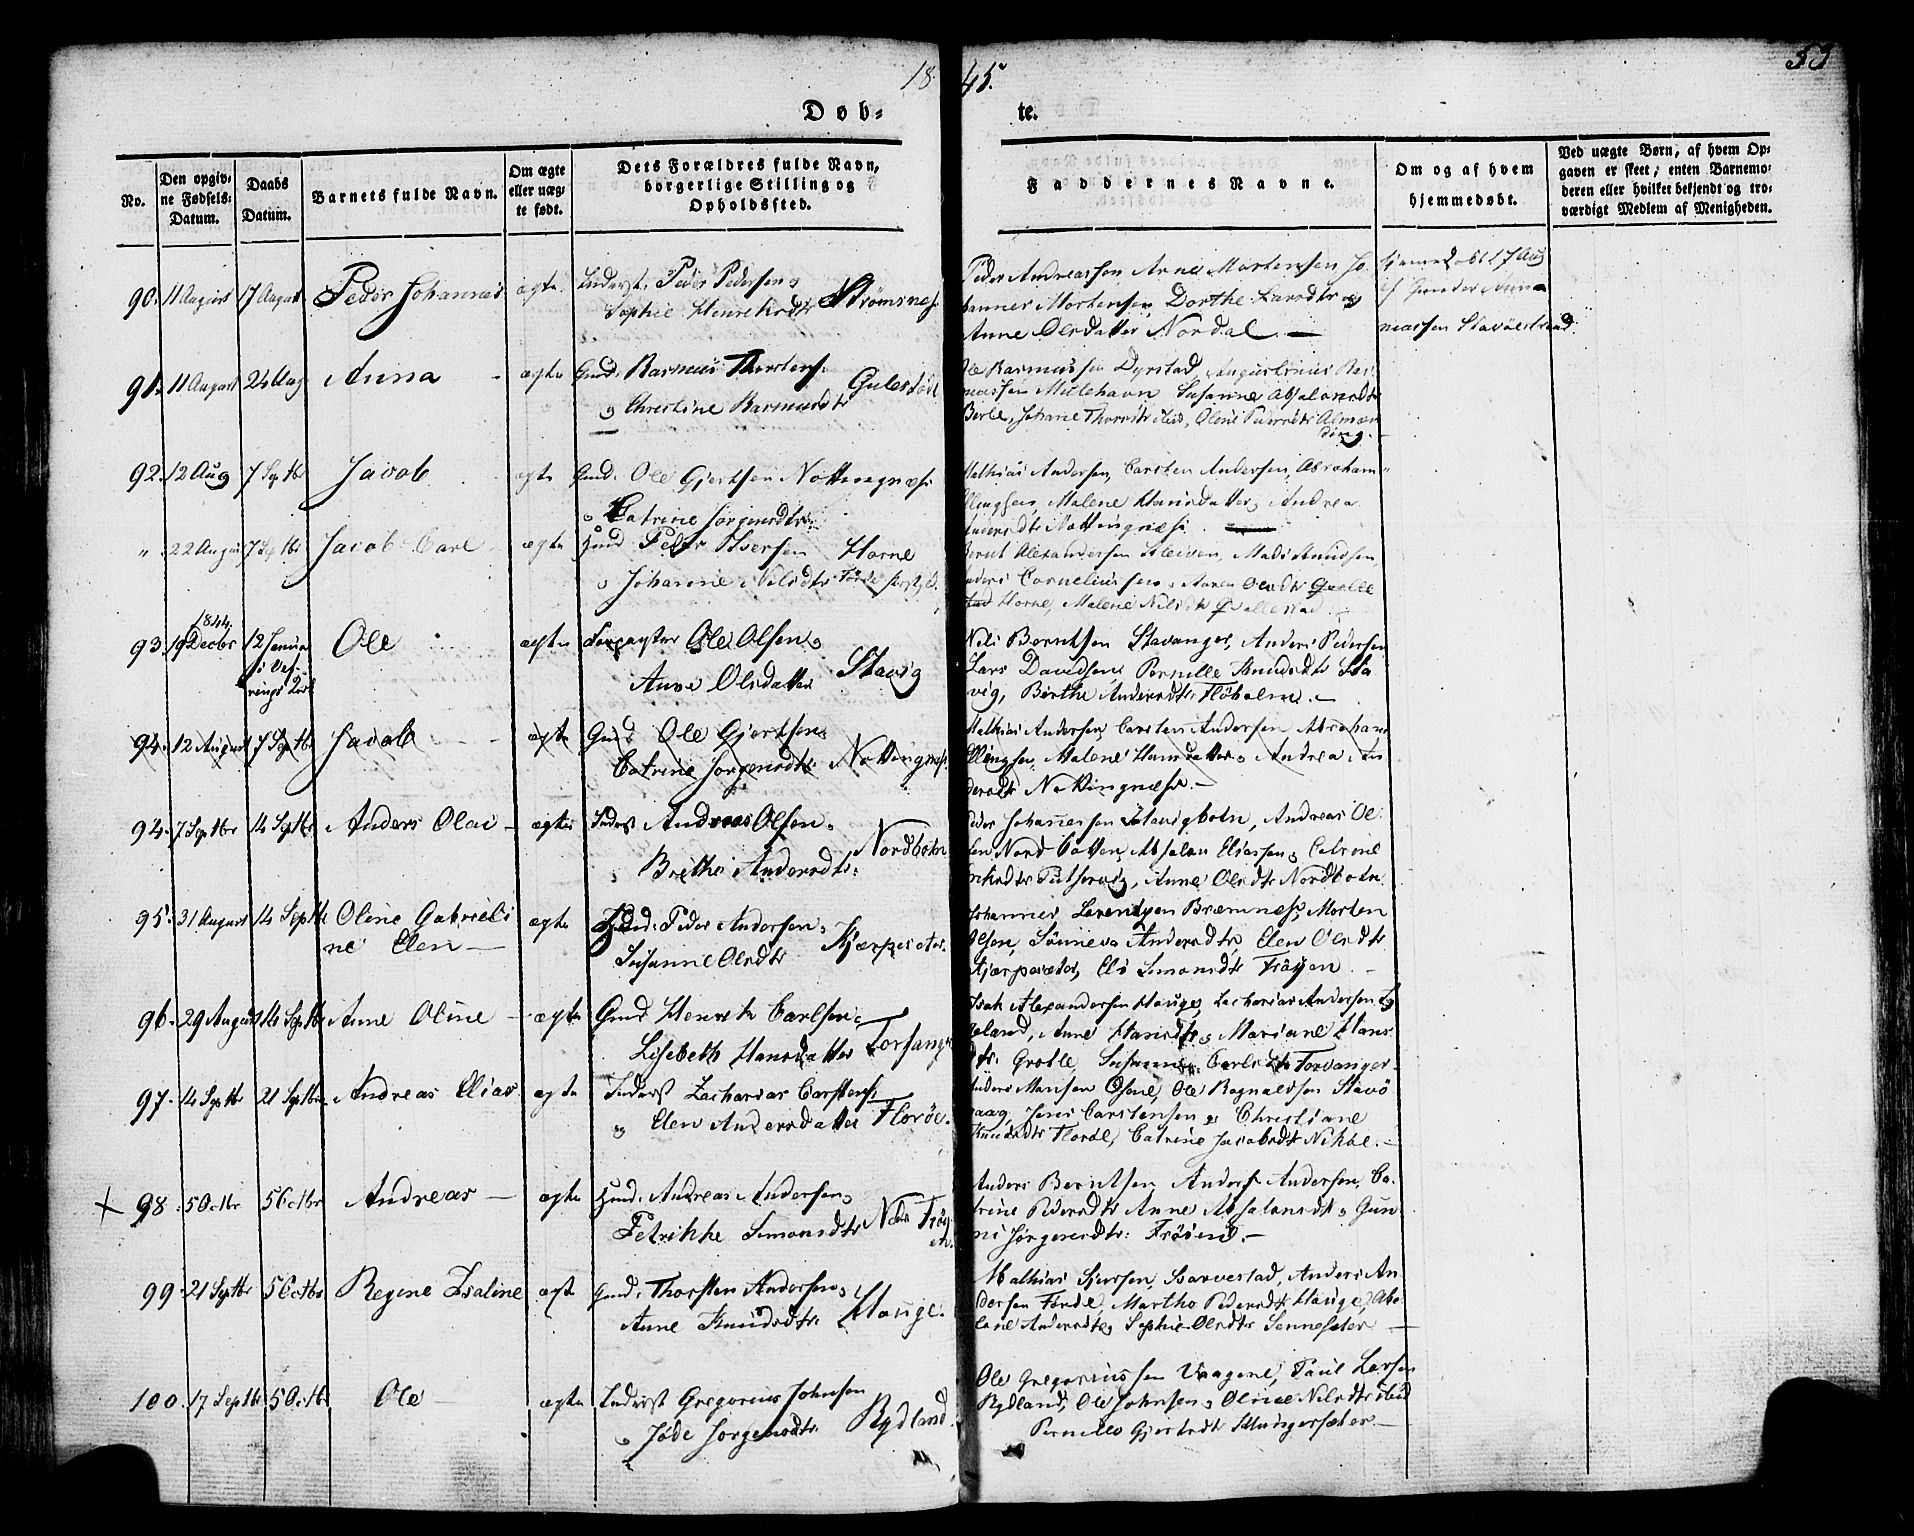 1845.
53
Døbte.
No.
Den opgivne Fødsels-Datum.
Daabs Datum.
Barnets fulde Navn.
Om ægte eller uægte født.
Dets Forældres fulde Navn, borgerlige Stilling og Opholdssted.
Faddernes Navne.
Om og af hvem hjemmedøbt.
Ved uægte Børn, af hvem Opgaven er skeet; enten Barnemoderen eller hvilket bekjendt og troværdigt Medlem af Menigheden.
90. 11 August 17 August Peder Johannes ægte Inderst. Peder Pedersen og Strømsnes.
Sophie Henriksdtr
Peder Andreassen, Arne Mortensen Jo
hannes Mortensen, Dorthe Larsdtr og
Anne Olsdatter Nordal. —
hjemmedøbt 17 Aug
91. 11 August 24 Aug Anna ægte Gmd. Rasmus Thorstens.
og Christine Rasmusdtr
Ole Rasmussen Dyrstad, Augustinus Ras
mussen Mulehavn Susanne Absalonsdtr
Berle, Johane Thorsdtr ibid, Oline
92. 12 Aug 7 Septbr Jacob ægte Gmd. Ole Gjertsen Nottingnæs.
og Catrine Jørgensdtr.
Mathias Andersen, Carsten Andersen, Abraham
Ellingsen, Malene Hansdatter, Andrea
Andersdtr Nottingnæs.
" 22 August 7 Septbr Jacob Carl ægte Huusmd Peder Iversen Horne
og Johanne Nilsdtr Førde
Bernt Alexandersen Kleiven, Mads Knudsen,
Anders Corneliussen, Maren Olsdtr Qvelle
stad Horne, Malene Nilsdtr Qvellestad.
93. 19 Decbr 1844. 12 Januar Ole ægte Forpagter Ole Olsen og Stavig
Anne Olsdatter
Nils Berntsen Stavanger, Anders Pedersen
Lars Davidsen, Pernille Knudsdtr Sta
vig, Birthe Andersdtr Fløholm. —
94. 12 August 7 Septbr Jacob ægte Gmd Ole Gjertsen og Nottingnæs.
Catrine Jørgensdtr
Mathias Andersen, Carsten Andersen, Abraham
Ellingsen, Malene Hansdatter, Andrea An
dersdtr Nottingnæs. —
94. 7 Septbr 14 Septbr Anders Olai ægte Inderst Andreas Olsen og Nordbotn
Brethe Andersdtr.
Peder Johannessen Stavigbotn, Andreas Ol
sen Nordbotten, Absalon Eliassen, Catrine
Anne Olsdtr Nordbotn.
95. 31 August 14 Septbr Oline Gabrieli
ne Elen — ægte Huusmd. Peder Andersen og
Susanne Olsdtr
Johannes Lorentzen Bremnæs, Morten
Olsen, Sønneva Andersdtr, Elen Olsdtr
Elis Simonsdtr Frøyen. —
96. 29 August 14 Septbr Anne Oline ægte Gmd Henrik Carlsen
Lisebeth Hansdatter
Isak Alexandersen Hauge, Zacharias Andersen
Anne Hansdtr, Mariane Hans
dtr. Grotle, Susanne Carlsdtr Torvanger
97. 14 Septbr 21 Septbr Andreas Elias ægte Inderst Zacharias Carstens.
og Elen Andersdatter Florøe.
Anders Monsen Osne, Ole Ragnaldsen Stavø
vaag, Jens Carstensen og Christiane
Knudsdtr Florøe, Catrine Jacobsdtr Nikbe. —
98. 5 Octbr 5 Octbr Andreas ægte Huusmd. Andreas Andersen og Nedre Frøy
Petrikke Simonsdtr en.
Anders Berntsen Anders Andersen, Ca
trine Pedersdtr Anne Absalonsdtr, Gun
ni Jørgensdtr. Frøien. —
99. 21 Septbr 5 Octbr Regine Isaline ægte Gmd. Thorsten Andersen og Hauge.
Anne Knudsdtr.
Mathias Sjursen, Barvestad, Anders An
dersen Førde, Marthe Pedersdtr Hauge, Abe
lone Andersdtr, Sophie Olsdtr Sennesæter —
100. 17 Septbr 5 Octbr Ole ægte Inderst Gregorius Johnsen
og Jøde Jørgensdtr. Rydland.
Ole Gregoriussen Vaagene, Paul Larsen
Rydland, Ole Johnsen, Oline Nilsdtr ibid
Pernille Gjertsdtr —